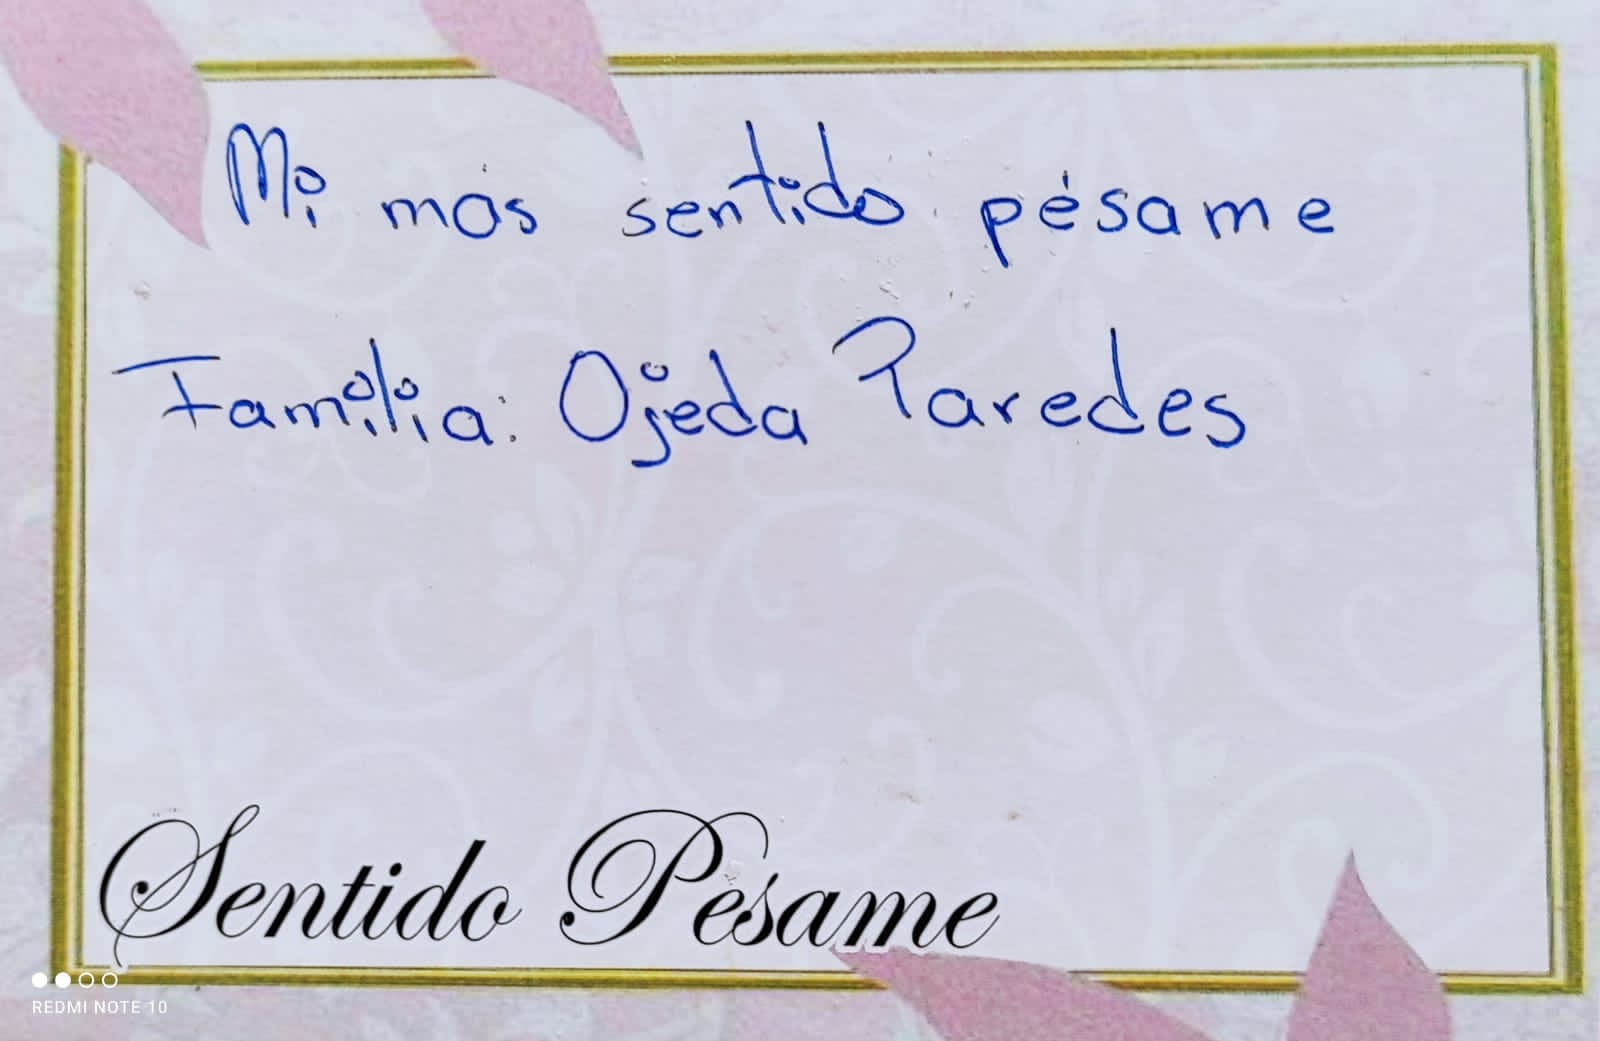 Mi más sentido pésame
Familia: Ojeda Paredes
Sentido Pésame
REDMI NOTE 10